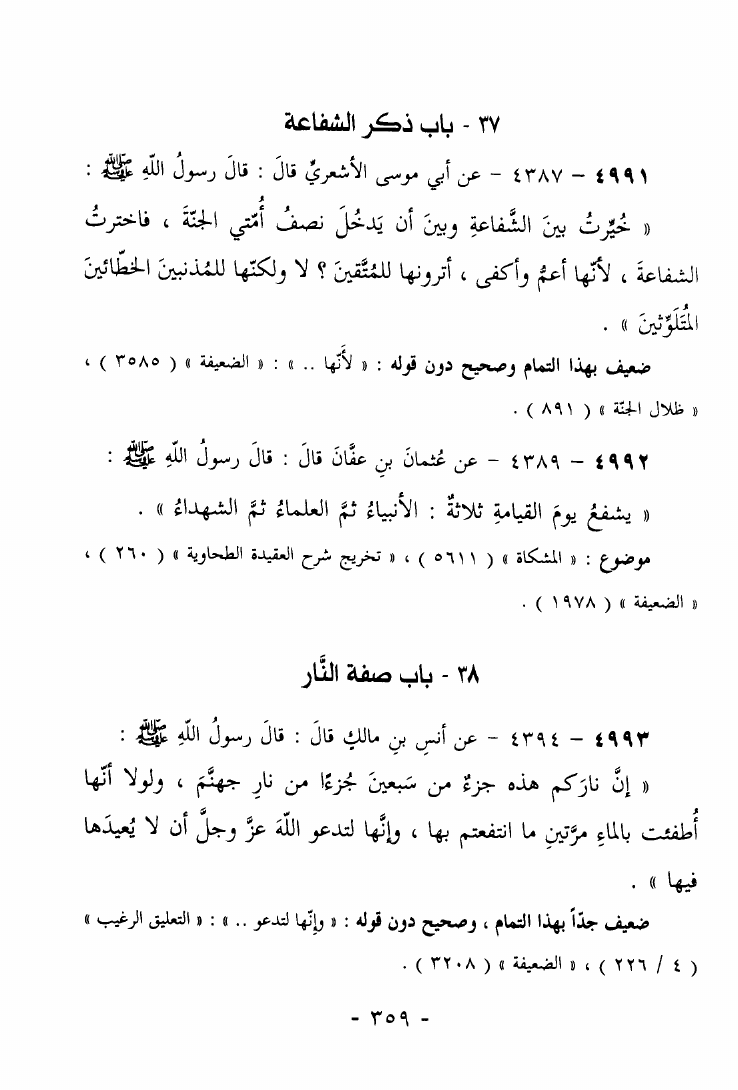 ٣٧ - باب ذكر الشفاعة
٤٩٩١ – ٤٣٨٧ – عن أبي موسى الأشعريِّ قالَ : قالَ رسولُ اللّهِ ﷺ :
« خُيِّرتُ بينَ الشَّفاعةِ وبينَ أن يَدخُلَ نصفُ أُمّتي الجنّةَ ، فاخترتُ
الشفاعةَ ، لأنّها أعمُّ وأكفى ، أترونها للمُتَّقينَ ؟ لا ولكنّها للمُذنبينَ الخطّائينَ
المُتَلَوِّثينَ » .
ضعيف بهذا التمام وصحيح دون قوله : « لأَنّها .. » : « الضعيفة » ( ٣٥٨٥ ) ،
« ظلال الجنّة » ( ٨٩١ ) .
٤٩٩٢ – ٤٣٨٩ – عن عُثمانَ بنِ عفَّانَ قالَ : قالَ رسولُ اللّهِ ﷺ :
« يشفعُ يومَ القيامةِ ثلاثةٌ : الأنبياءُ ثمَّ العلماءُ ثمَّ الشهداءُ » .
موضوع : « المشكاة » ( ٥٦١١ ) ، « تخريج شرح العقيدة الطحاوية » ( ٢٦٠ ) ،
« الضعيفة » ( ١٩٧٨ ) .
٣٨ - باب صفة النَّار
٤٩٩٣ – ٤٣٩٤ – عن أنسِ بنِ مالكٍ قالَ : قالَ رسولُ اللّهِ ﷺ :
« إنَّ نارَكم هذه جزءٌ من سَبعينَ جُزءًا من نارِ جهنَّمَ ، ولولا أنّها
أُطفئت بالماءِ مرَّتينِ ما انتفعتم بها ، وإنَّها لتدعو اللّهَ عزَّ وجلَّ أن لا يُعيدَها
فيها » .
ضعيف جدّاً بهذا التمام ، وصحيح دون قوله : « وإنّها لتدعو .. » : « التعليق الرغيب »
( ٤ / ٢٢٦ ) ، « الضعيفة » ( ٣٢٠٨ ) .
- ٣٥٩ -